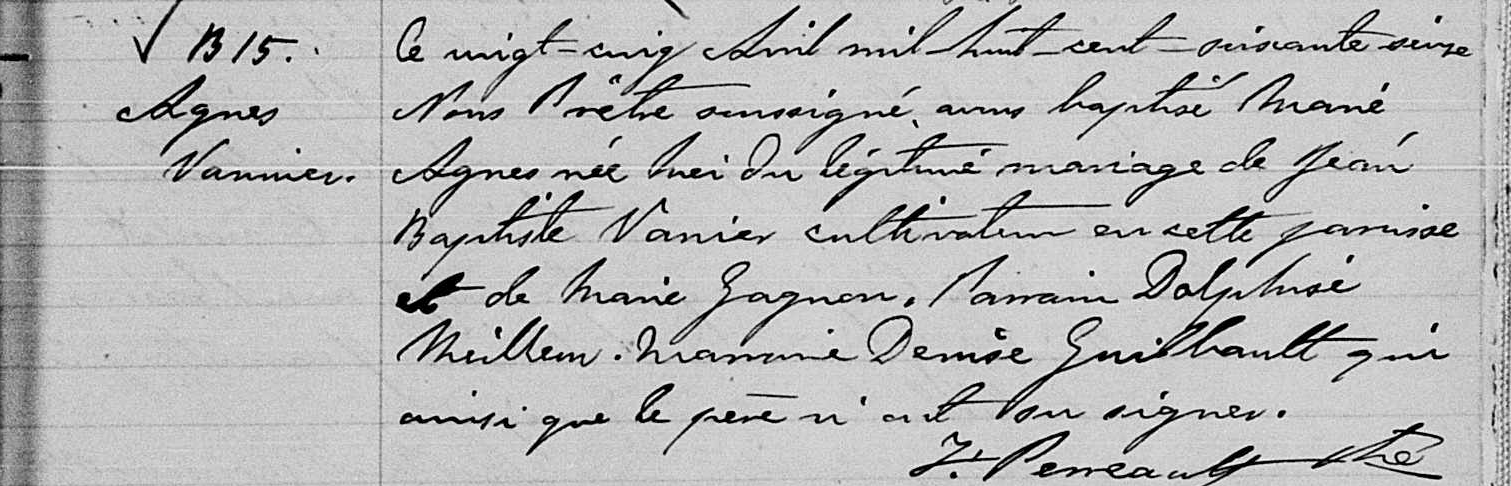 B 15.
Agnes
Vannier.
Ce vingt-cinq Avril mil-huit-cent-soixante-seize
Nous Prêtre soussigné avons baptisé Marie
Agnes née hier du légitime mariage de Jean
Baptiste Vanier cultivateur en cette paroisse
et de Marie Gagnon. Parrain Dolphise
Meilleur. Marraine Denise Guilbault qui
ainsi que le père n'ont su signer.
Perreault Ptre